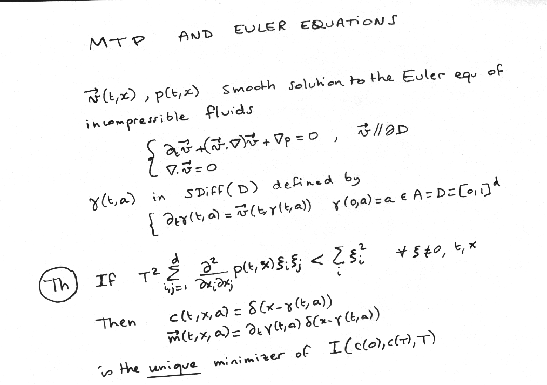 MTP AND EULER EQUATIONS
v⃗(t,x), p(t,x) smooth solution to the Euler equ of
incompressible fluids
{ ∂v⃗ + (v⃗.∇)v⃗ + ∇p = 0 , v⃗ // ∂D
∇.v⃗ = 0
γ(t,a) in SDiff(D) defined by
{ ∂tγ(t,a) = v⃗(t,γ(t,a)) γ(0,a) = a ∈ A = D = [0,1]^d
Th If T² Σ_{i,j=1}^d ∂²/∂xi∂xj p(t,x) ξi ξj < Σ_i ξi² ∀ ξ≠0, t, x
Then c(t,x,a) = δ(x-γ(t,a))
m⃗(t,x,a) = ∂tγ(t,a) δ(x-γ(t,a))
is the unique minimizer of I(c(0),c(T),T)